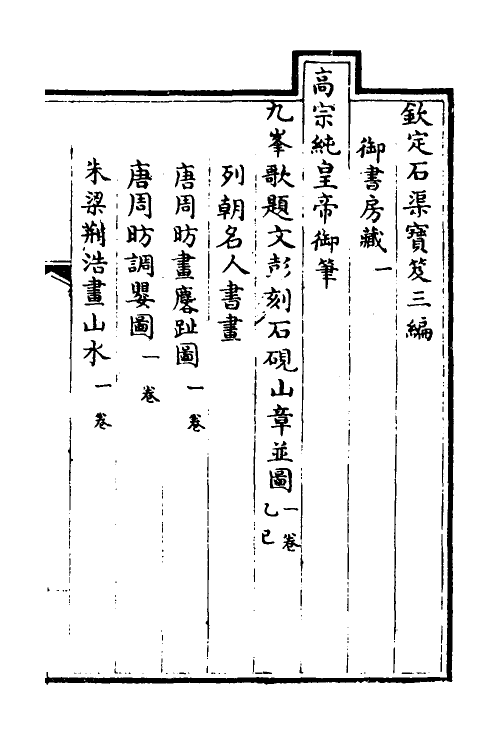 欽定石渠寶笈三編
御書房藏一
高宗純皇帝御筆
九峯歌題文彭刻石硯山章並圖一卷乙巳
列朝名人書畫
唐周昉畫麐趾圖一卷
唐周昉調嬰圖一卷
朱梁荆浩畫山水一卷